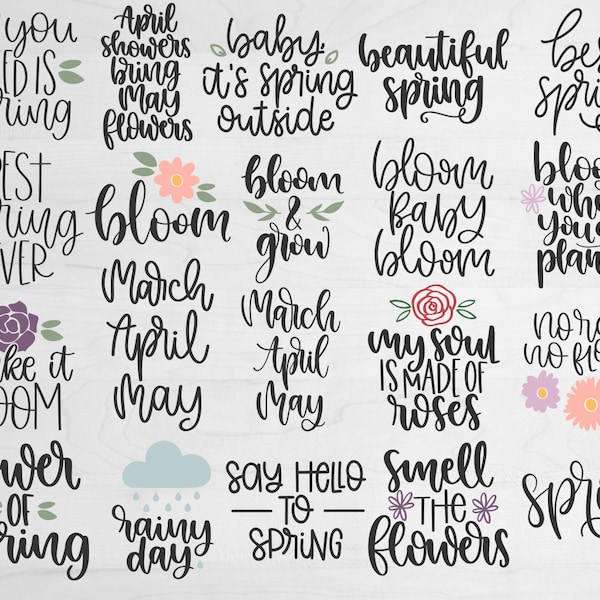 you
ED IS
ring
April
showers
bring
May
flowers
baby
it's spring
outside
beautiful
spring
bes
spri
EST
ring
VER
bloom
bloom
&
grow
bloom
BABY
bloom
bloo
whe
you
plan
March
April
May
March
April
May
my soul
IS MADE OF
roses
ke it
OOM
no ra
no flo
ower
OF
ring
rainy
day
SAY HELLO
TO
SPRING
smell
THE
flowers
spri